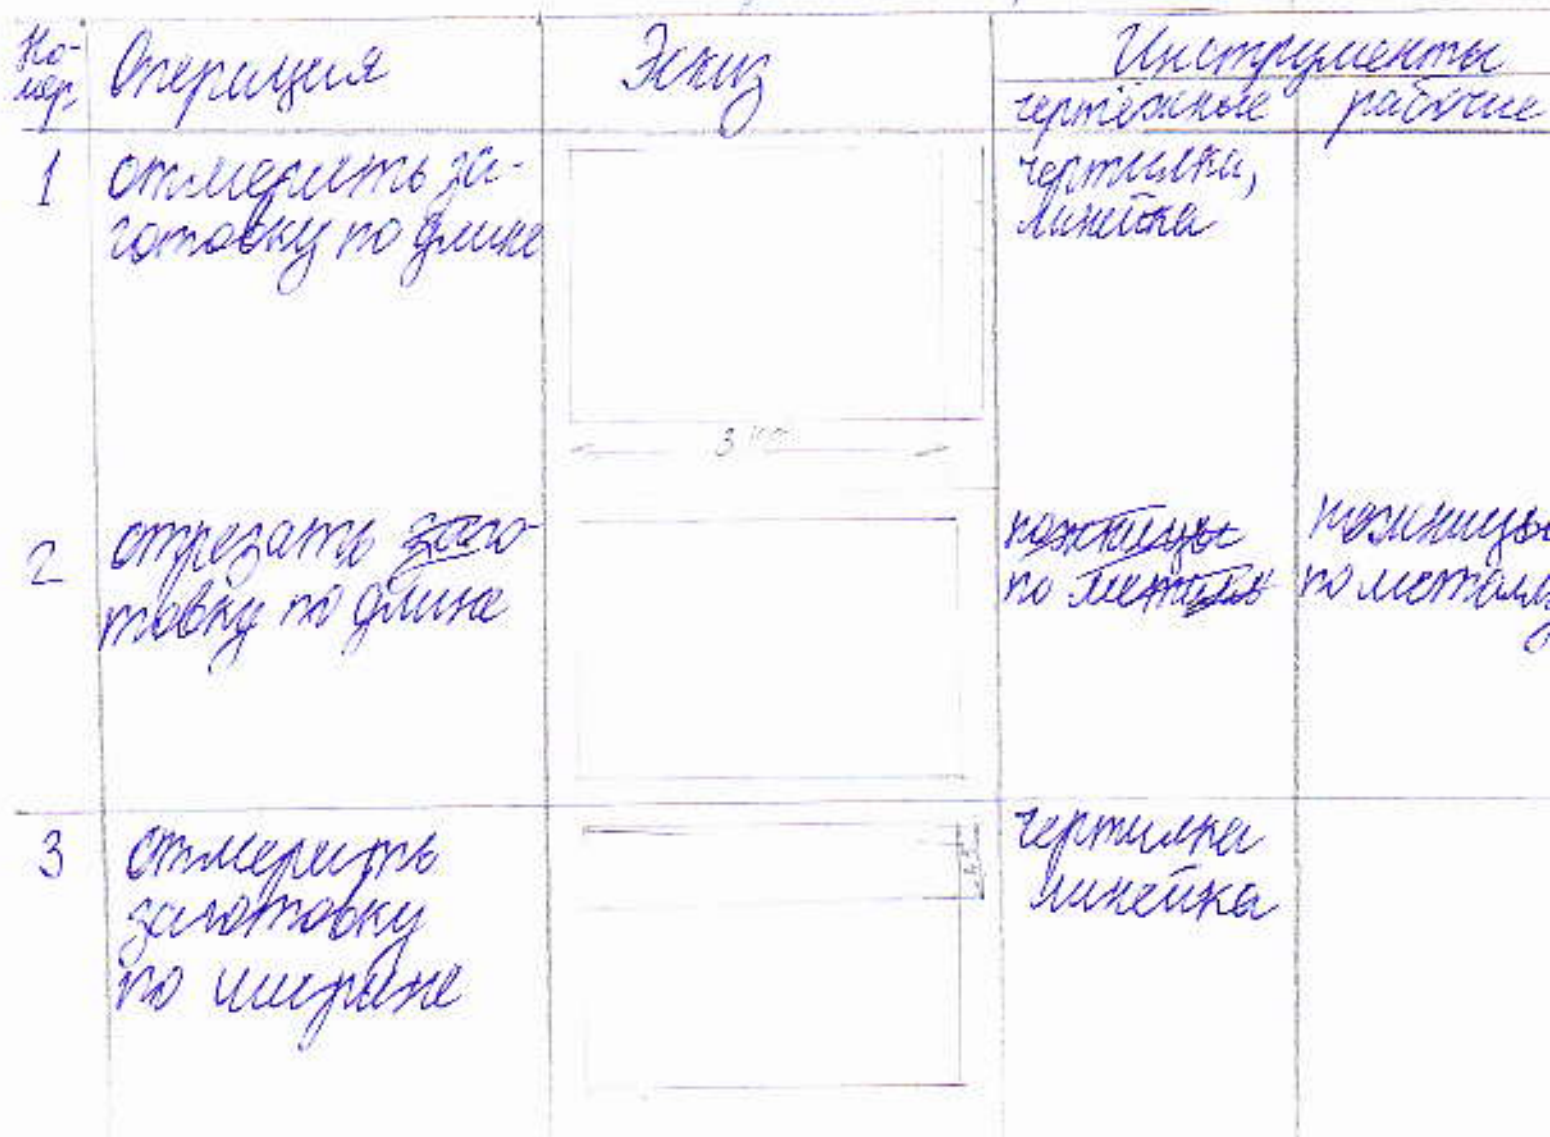 Но-
мер.
Операция
Эскиз
Инструменты
чертёжные
рабочие
1
отмерить за-
готовку по длине
чертилка,
линейка
3
2
отрезать заго-
товку по длине
ножницы
по металлу
ножницы
по металлу
3
отмерить
заготовку
по ширине
чертилка
линейка